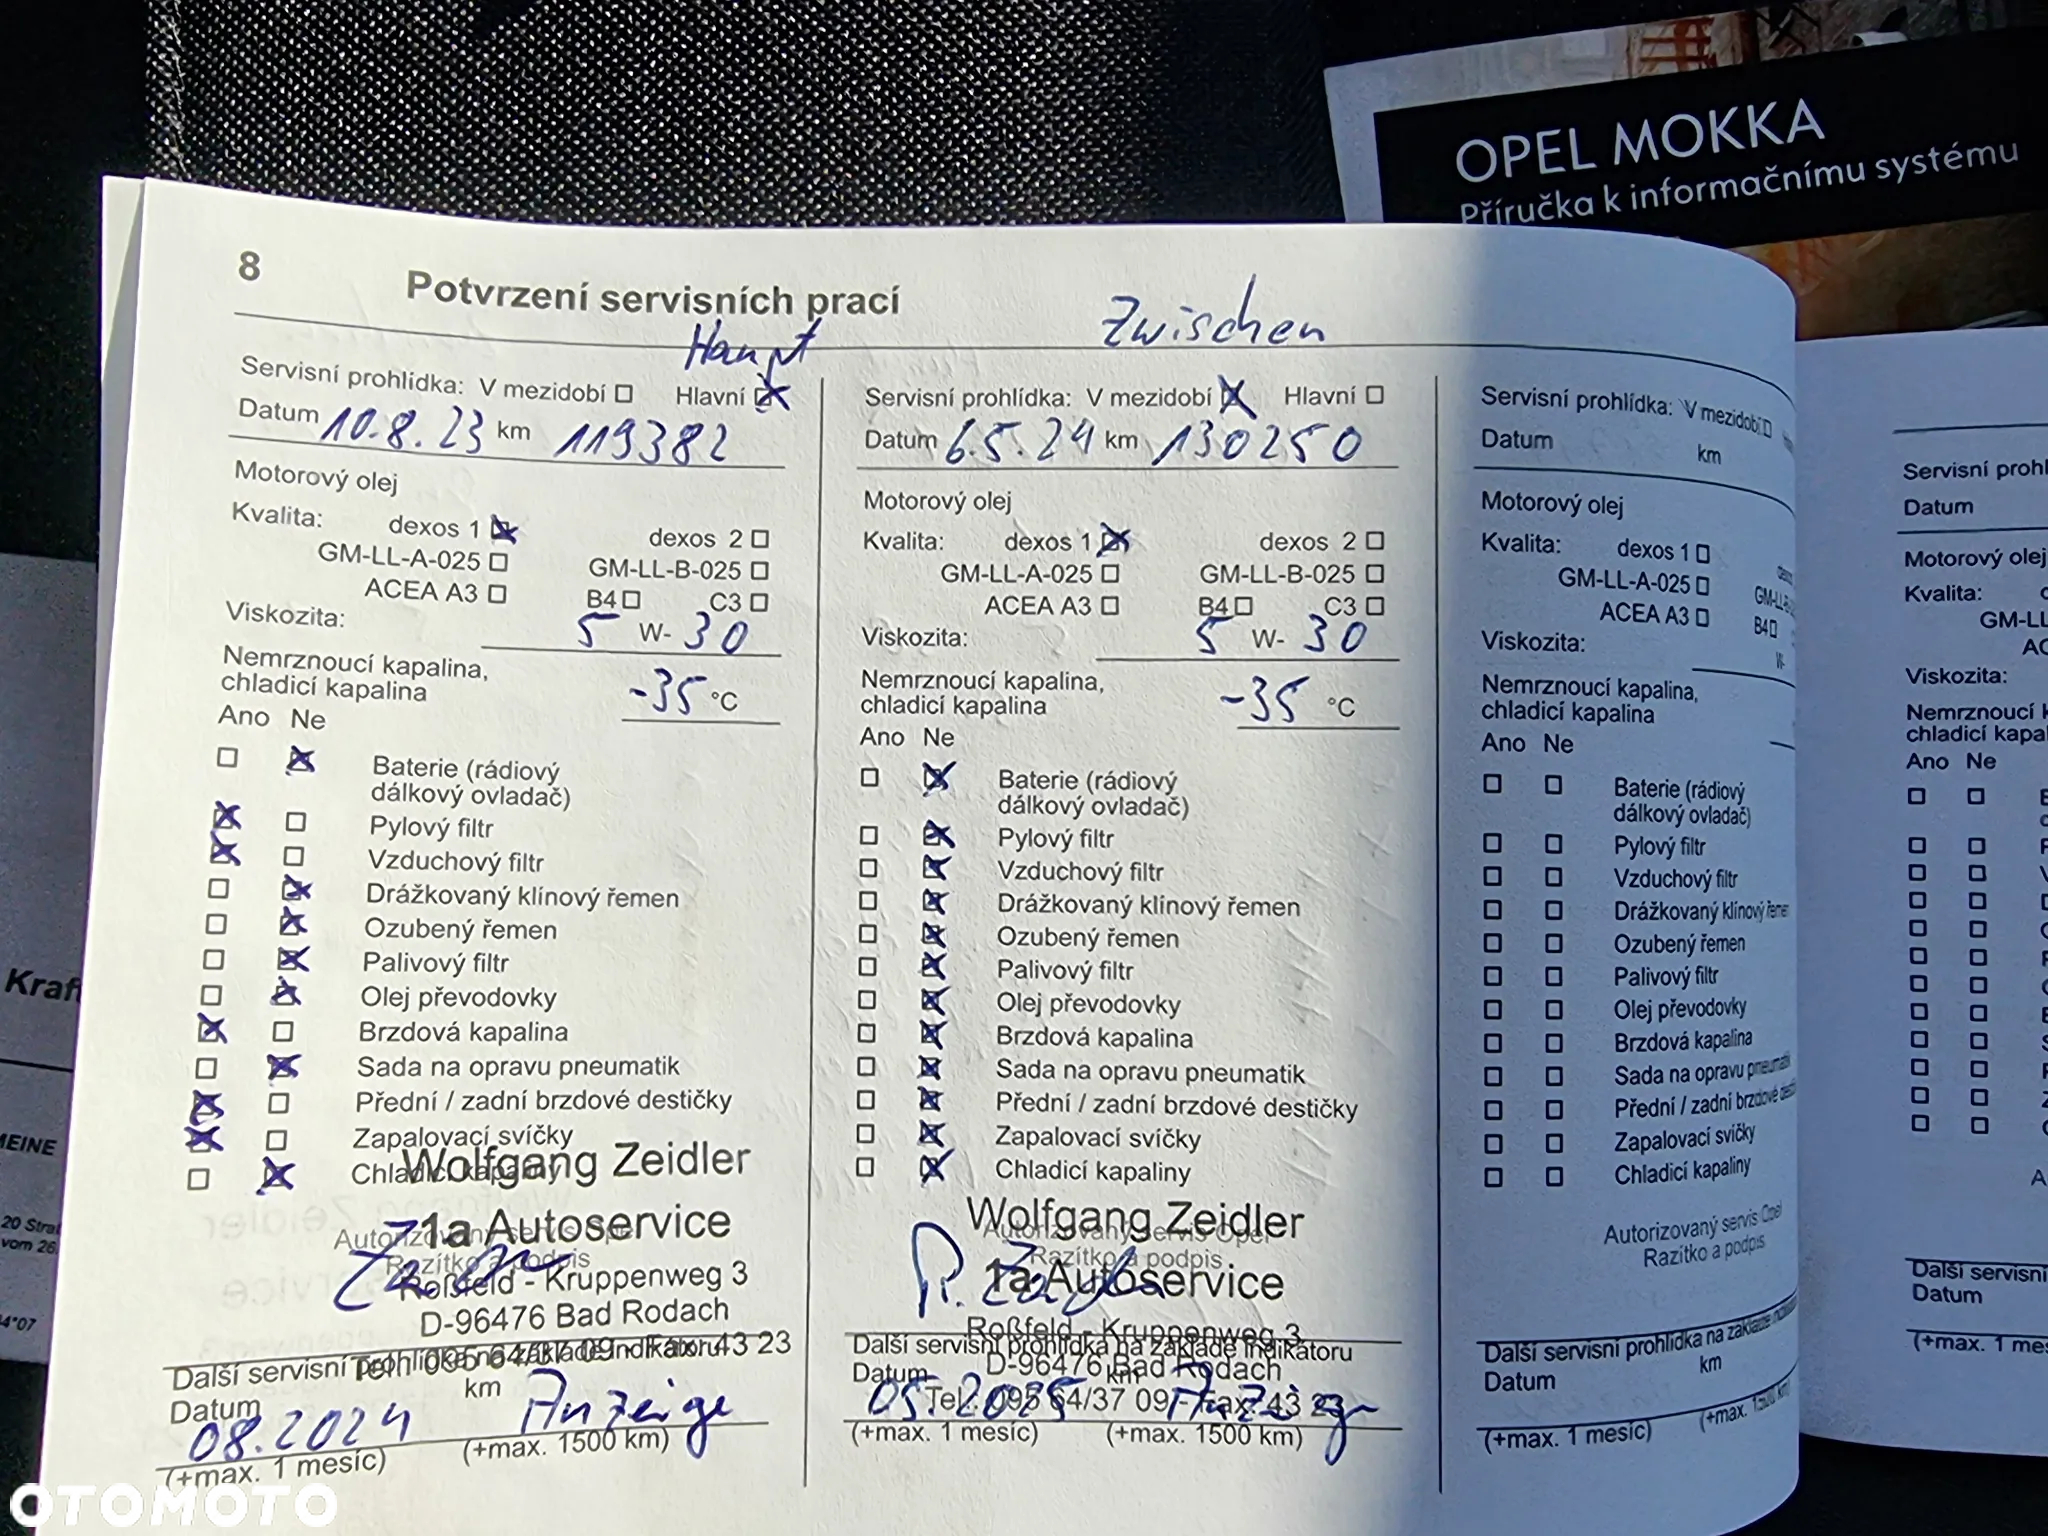 OPEL MOKKA
Příručka k informačnímu systému
8
Potvrzení servisních prací
Haupt
Servisní prohlídka: V mezidobí Hlavní
Datum 10.8.23 km 119382
Motorový olej
Kvalita: dexos 1 dexos 2
GM-LL-A-025 GM-LL-B-025
ACEA A3 B4 C3
Viskozita: 5 W- 30
Nemrznoucí kapalina,
chladicí kapalina -35 °C
Ano Ne
Baterie (rádiový
dálkový ovladač)
Pylový filtr
Vzduchový filtr
Drážkovaný klínový řemen
Ozubený řemen
Palivový filtr
Olej převodovky
Brzdová kapalina
Sada na opravu pneumatik
Přední / zadní brzdové destičky
Zapalovací svíčky
Chladicí kapaliny
Wolfgang Zeidler
1a Autoservice
Autorizovaný servis Opel
Razítko a podpis
Roßfeld - Kruppenweg 3
D-96476 Bad Rodach
Tel. 095 64/37 09 - Fax: 43 23
Další servisní prohlídka na základě indikátoru
Datum km
08.2024 Anzeige
(+max. 1 měsíc) (+max. 1500 km)
Zwischen
Servisní prohlídka: V mezidobí Hlavní
Datum 6.5.24 km 130250
Motorový olej
Kvalita: dexos 1 dexos 2
GM-LL-A-025 GM-LL-B-025
ACEA A3 B4 C3
Viskozita: 5 W- 30
Nemrznoucí kapalina,
chladicí kapalina -35 °C
Ano Ne
Baterie (rádiový
dálkový ovladač)
Pylový filtr
Vzduchový filtr
Drážkovaný klínový řemen
Ozubený řemen
Palivový filtr
Olej převodovky
Brzdová kapalina
Sada na opravu pneumatik
Přední / zadní brzdové destičky
Zapalovací svíčky
Chladicí kapaliny
Wolfgang Zeidler
Autorizovaný servis Opel
Razítko a podpis
1a Autoservice
Roßfeld - Kruppenweg 3
Další servisní prohlídka na základě indikátoru
D-96476 Bad Rodach
Datum km
Tel. 095 64/37 09 - Fax: 43 23
05.2025 Anzeige
(+max. 1 měsíc) (+max. 1500 km)
Servisní prohlídka: V mezidobí
Datum km
Motorový olej
Kvalita: dexos 1
GM-LL-A-025
ACEA A3 B4
Viskozita: W-
Nemrznoucí kapalina,
chladicí kapalina
Ano Ne
Baterie (rádiový
dálkový ovladač)
Pylový filtr
Vzduchový filtr
Drážkovaný klínový řemen
Ozubený řemen
Palivový filtr
Olej převodovky
Brzdová kapalina
Sada na opravu pneumatik
Přední / zadní brzdové
Zapalovací svíčky
Chladicí kapaliny
Autorizovaný servis Opel
Razítko a podpis
Další servisní prohlídka na základě
Datum km
(+max. 1 měsíc) (+max. 1500 km)
Servisní
Datum
Motorový olej
Kvalita:
GM-LL
Viskozita:
Nemrznoucí
chladicí
Ano Ne
Další servisní
Datum
(+max. 1
Kraft
MEINE
vom 26.
OTOMOTO